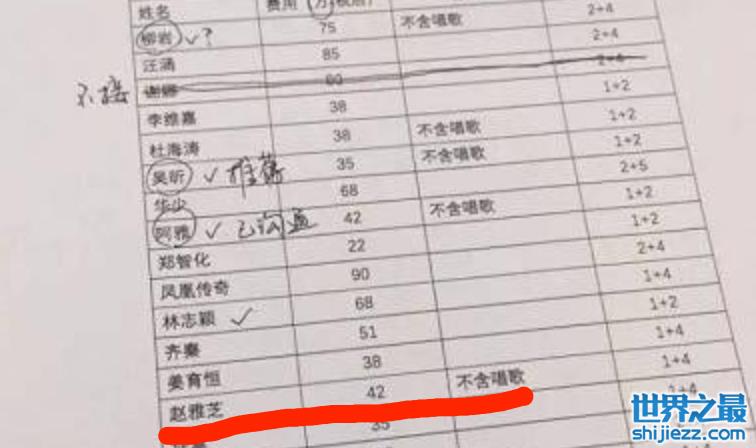 姓名 费用(万/税后)
柳岩 ✓? 75 不含唱歌 2+4
汪涵 85 2+4
不接 谢娜 60 2+4
李维嘉 38 1+2
杜海涛 38 不含唱歌 1+2
吴昕 ✓推荐 35 不含唱歌 1+2
华少 68 2+5
阿雅 ✓已沟通 42 不含唱歌 1+2
郑智化 22 1+2
凤凰传奇 90 2+4
林志颖 ✓ 68 1+4
齐秦 51 1+2
姜育恒 38 1+4
赵雅芝 42 不含唱歌 1+4
35 1+4
世界之最
shijiezz.com